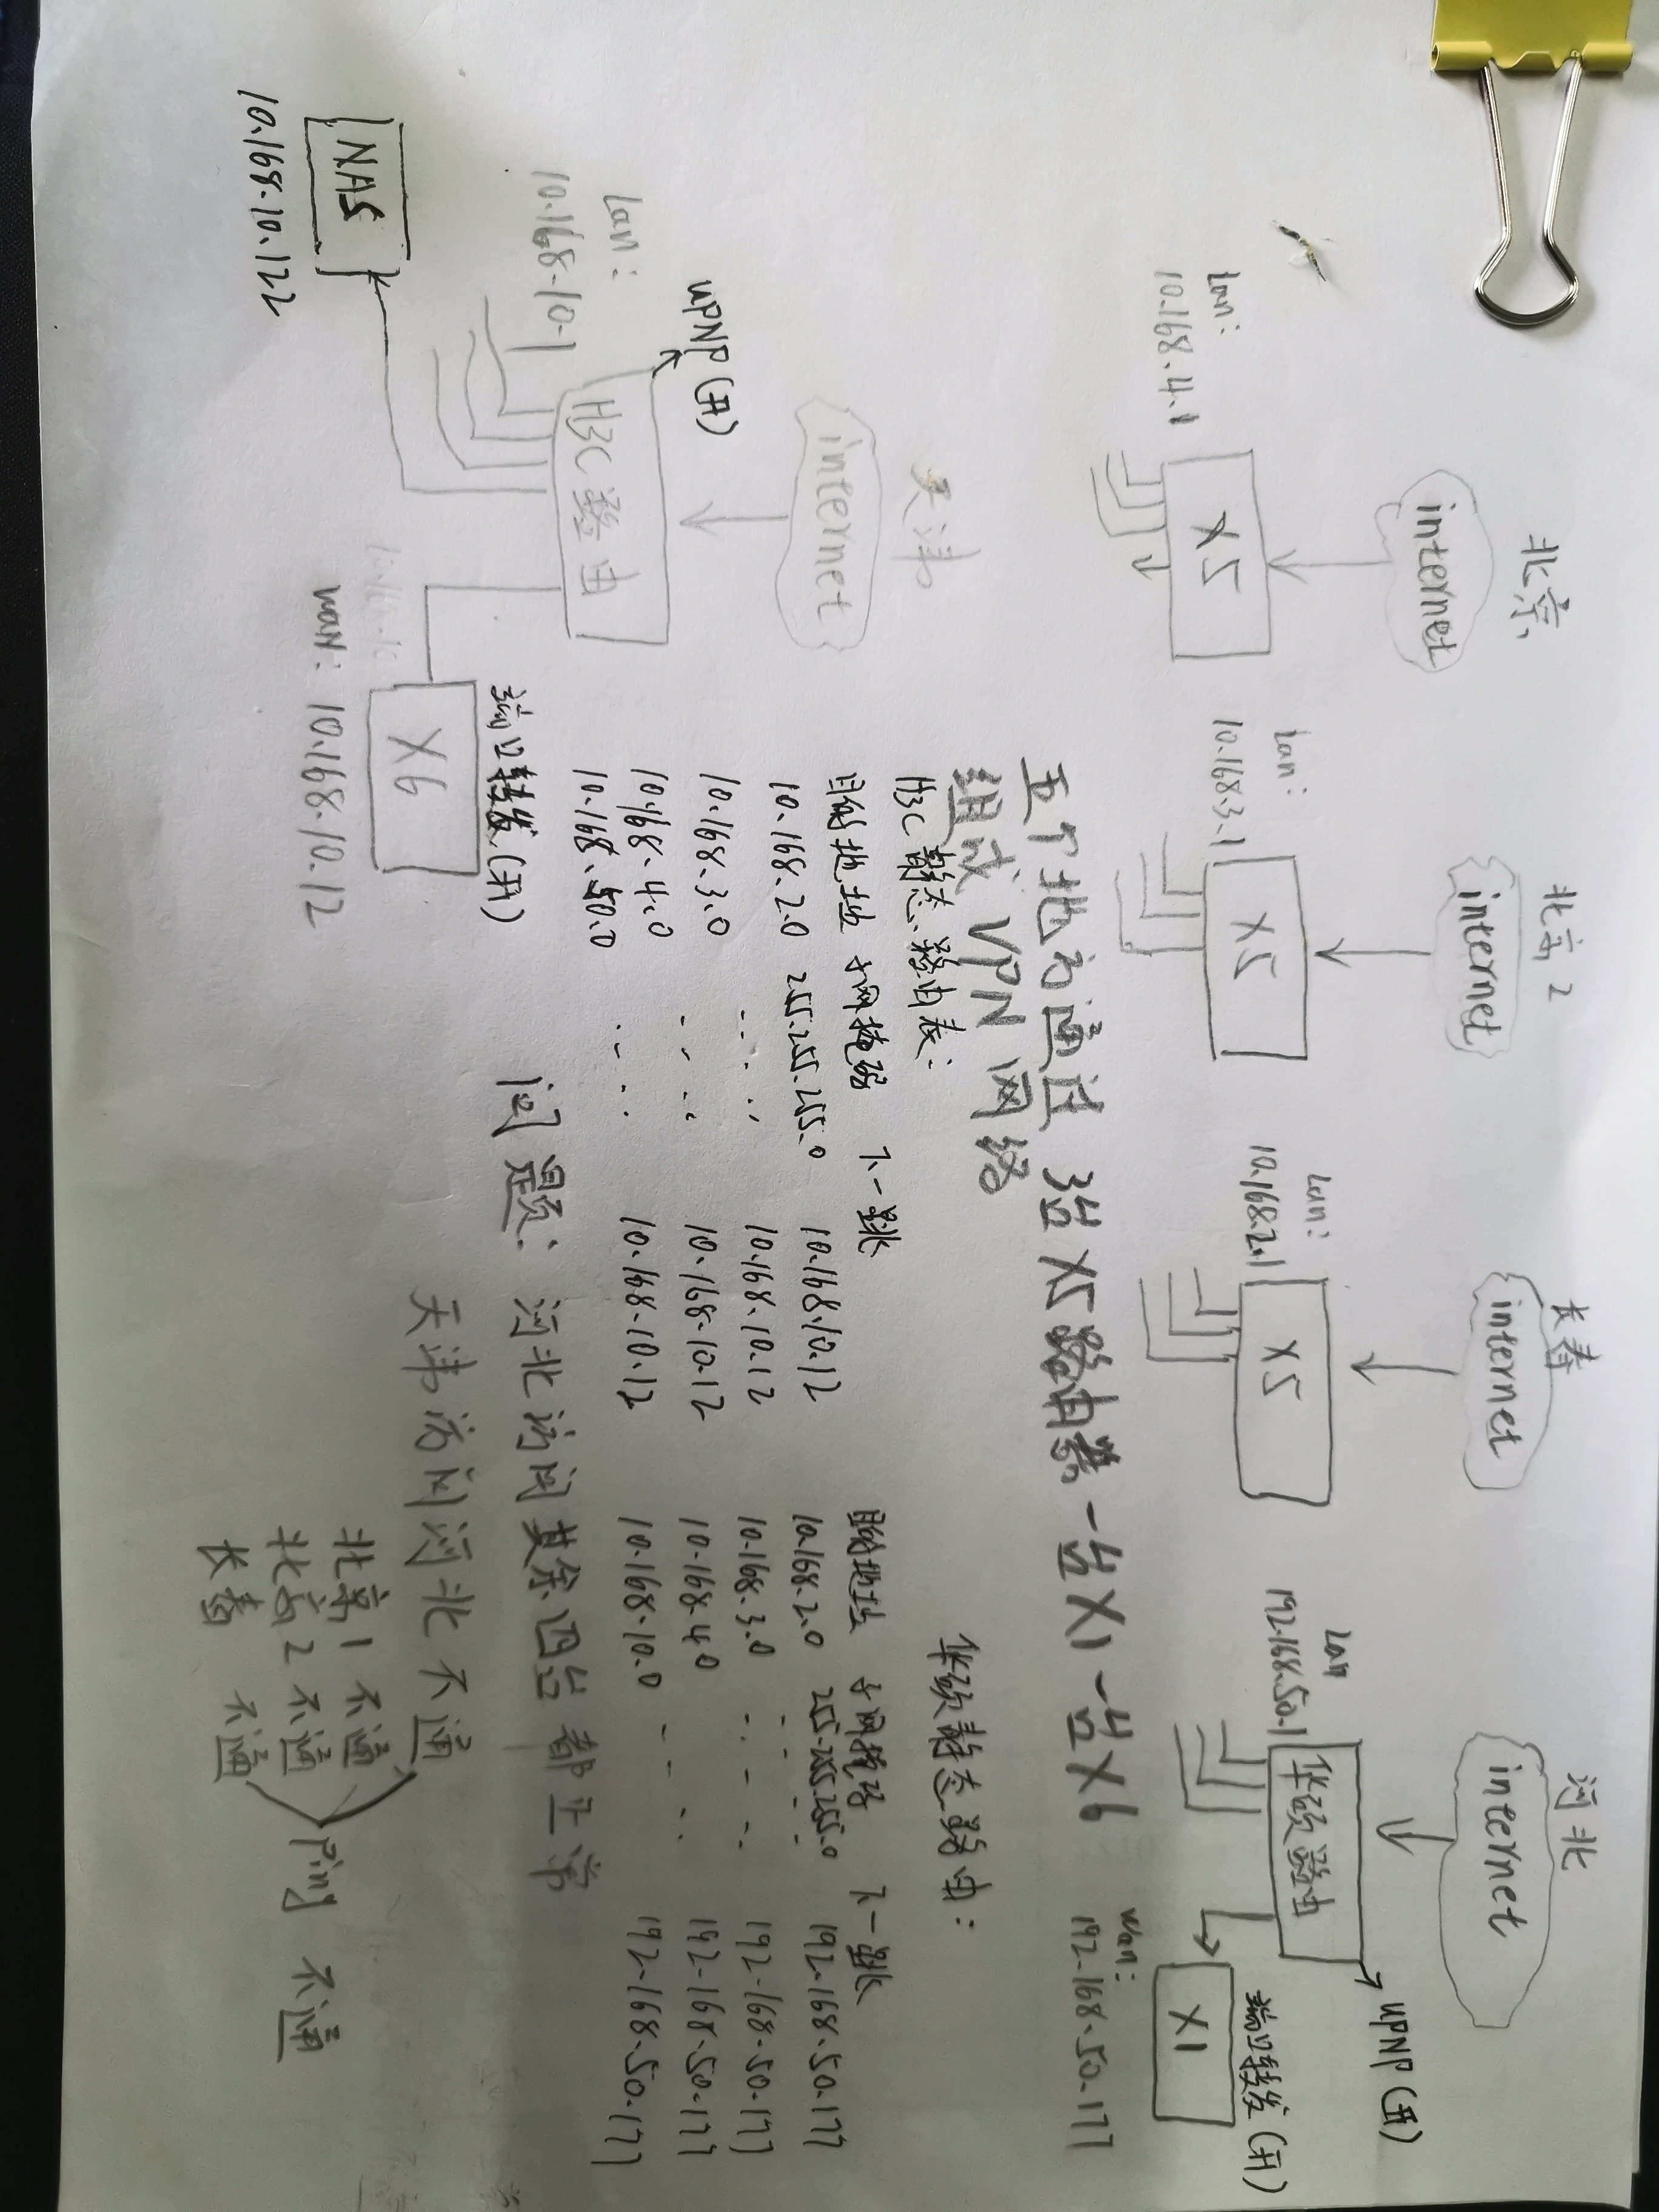 北京
internet
Lan:
10.168.4.1
X5
北京2
internet
Lan:
10.168.3.1
X5
长春
internet
Lan:
10.168.2.1
X5
河北
internet
Lan
192.168.50.1
华硕路由
UPNP(开)
X1
端口转发(开)
Wan:
192.168.50.177
五个地方通过 3台X5路由器 一台X1 一台X6
组成 VPN 网络
天津
internet
UPNP(开)
Lan:
10.168.10.1
H3C路由
NAS
10.168.10.122
X6
端口转发(开)
Wan: 10.168.10.12
H3C静态路由表:
目的地址 子网掩码 下一跳
10.168.2.0 255.255.255.0 10.168.10.12
10.168.3.0 10.168.10.12
10.168.4.0 10.168.10.12
10.168.50.0 10.168.10.12
华硕静态路由:
目的地址 子网掩码 下一跳
10.168.2.0 255.255.255.0 192.168.50.177
10.168.3.0 192.168.50.177
10.168.4.0 192.168.50.177
10.168.10.0 192.168.50.177
问题: 河北访问其余四台都正常
天津访问河北不通
北京1 不通
北京2 不通
长春 不通
Ping 不通